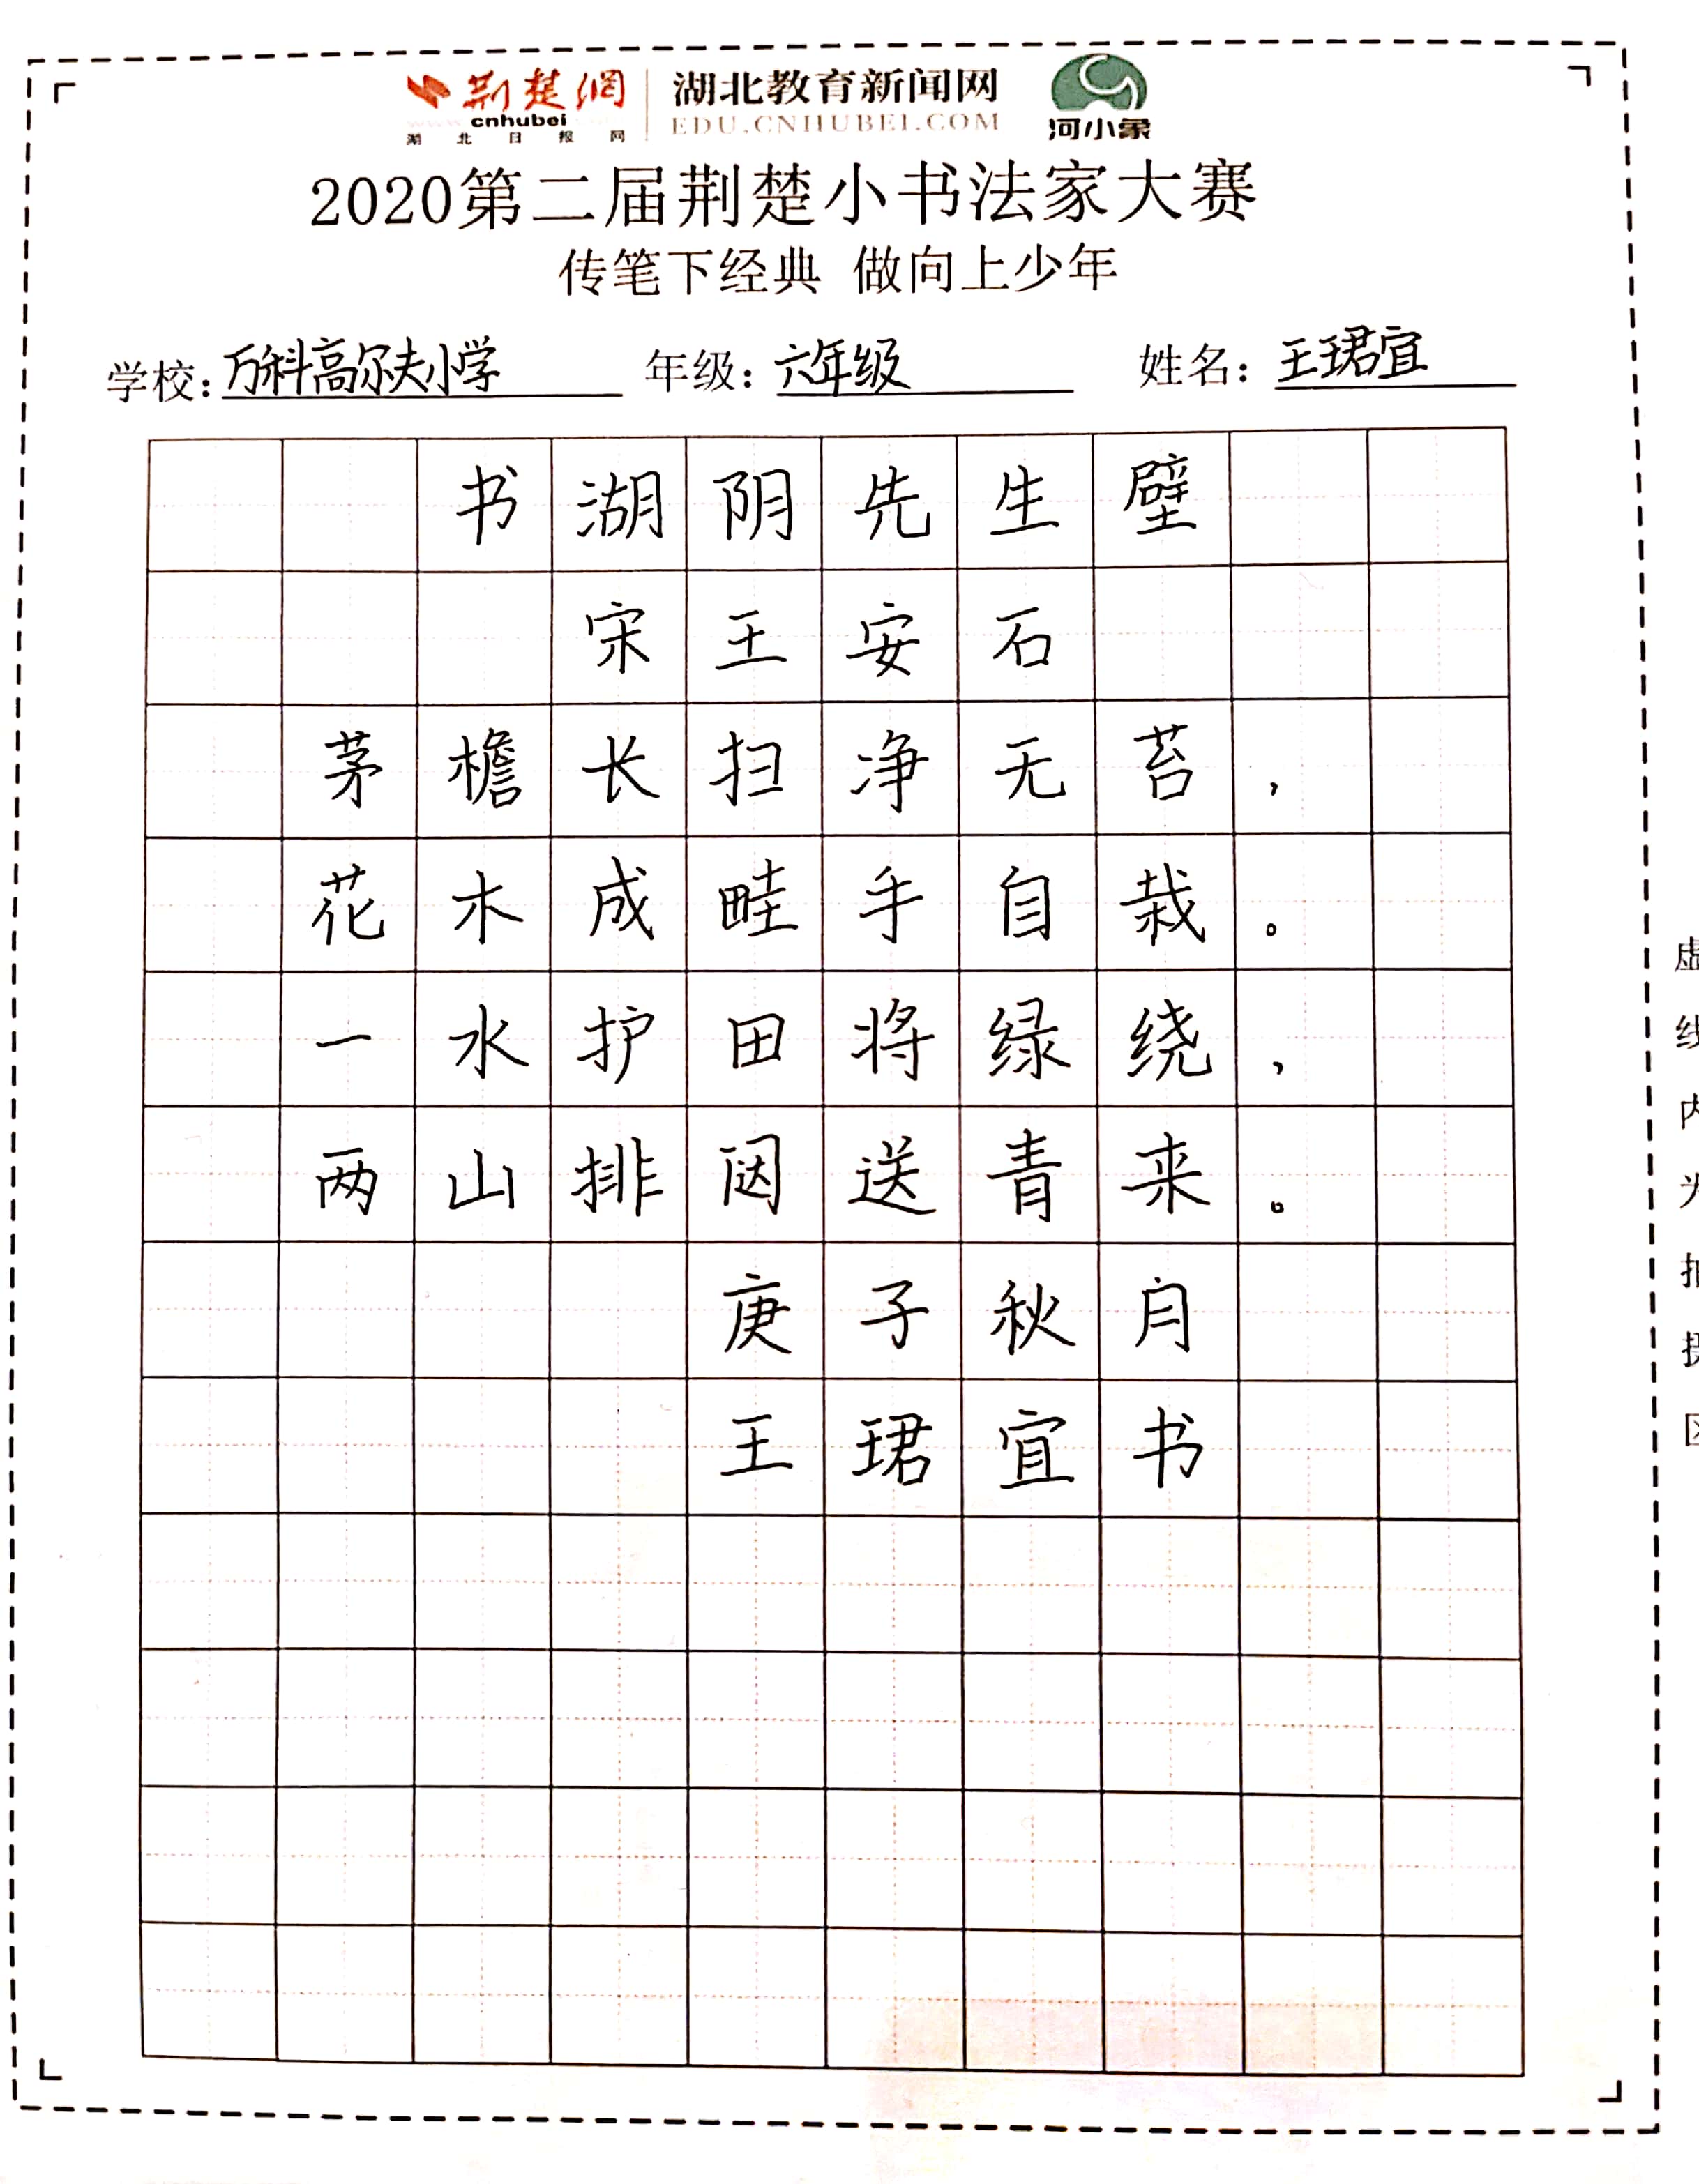 荆楚網 湖北教育新闻网
cnhubei EDU.CNHUBEI.COM
湖北日报网 河小象
2020第二届荆楚小书法家大赛
传笔下经典 做向上少年
学校：万科高尔夫小学 年级：六年级 姓名：王珺宜
书湖阴先生壁
宋王安石
茅檐长扫净无苔，
花木成畦手自栽。
一水护田将绿绕，
两山排闼送青来。
庚子秋月
王珺宜书
虚线内为拍摄区